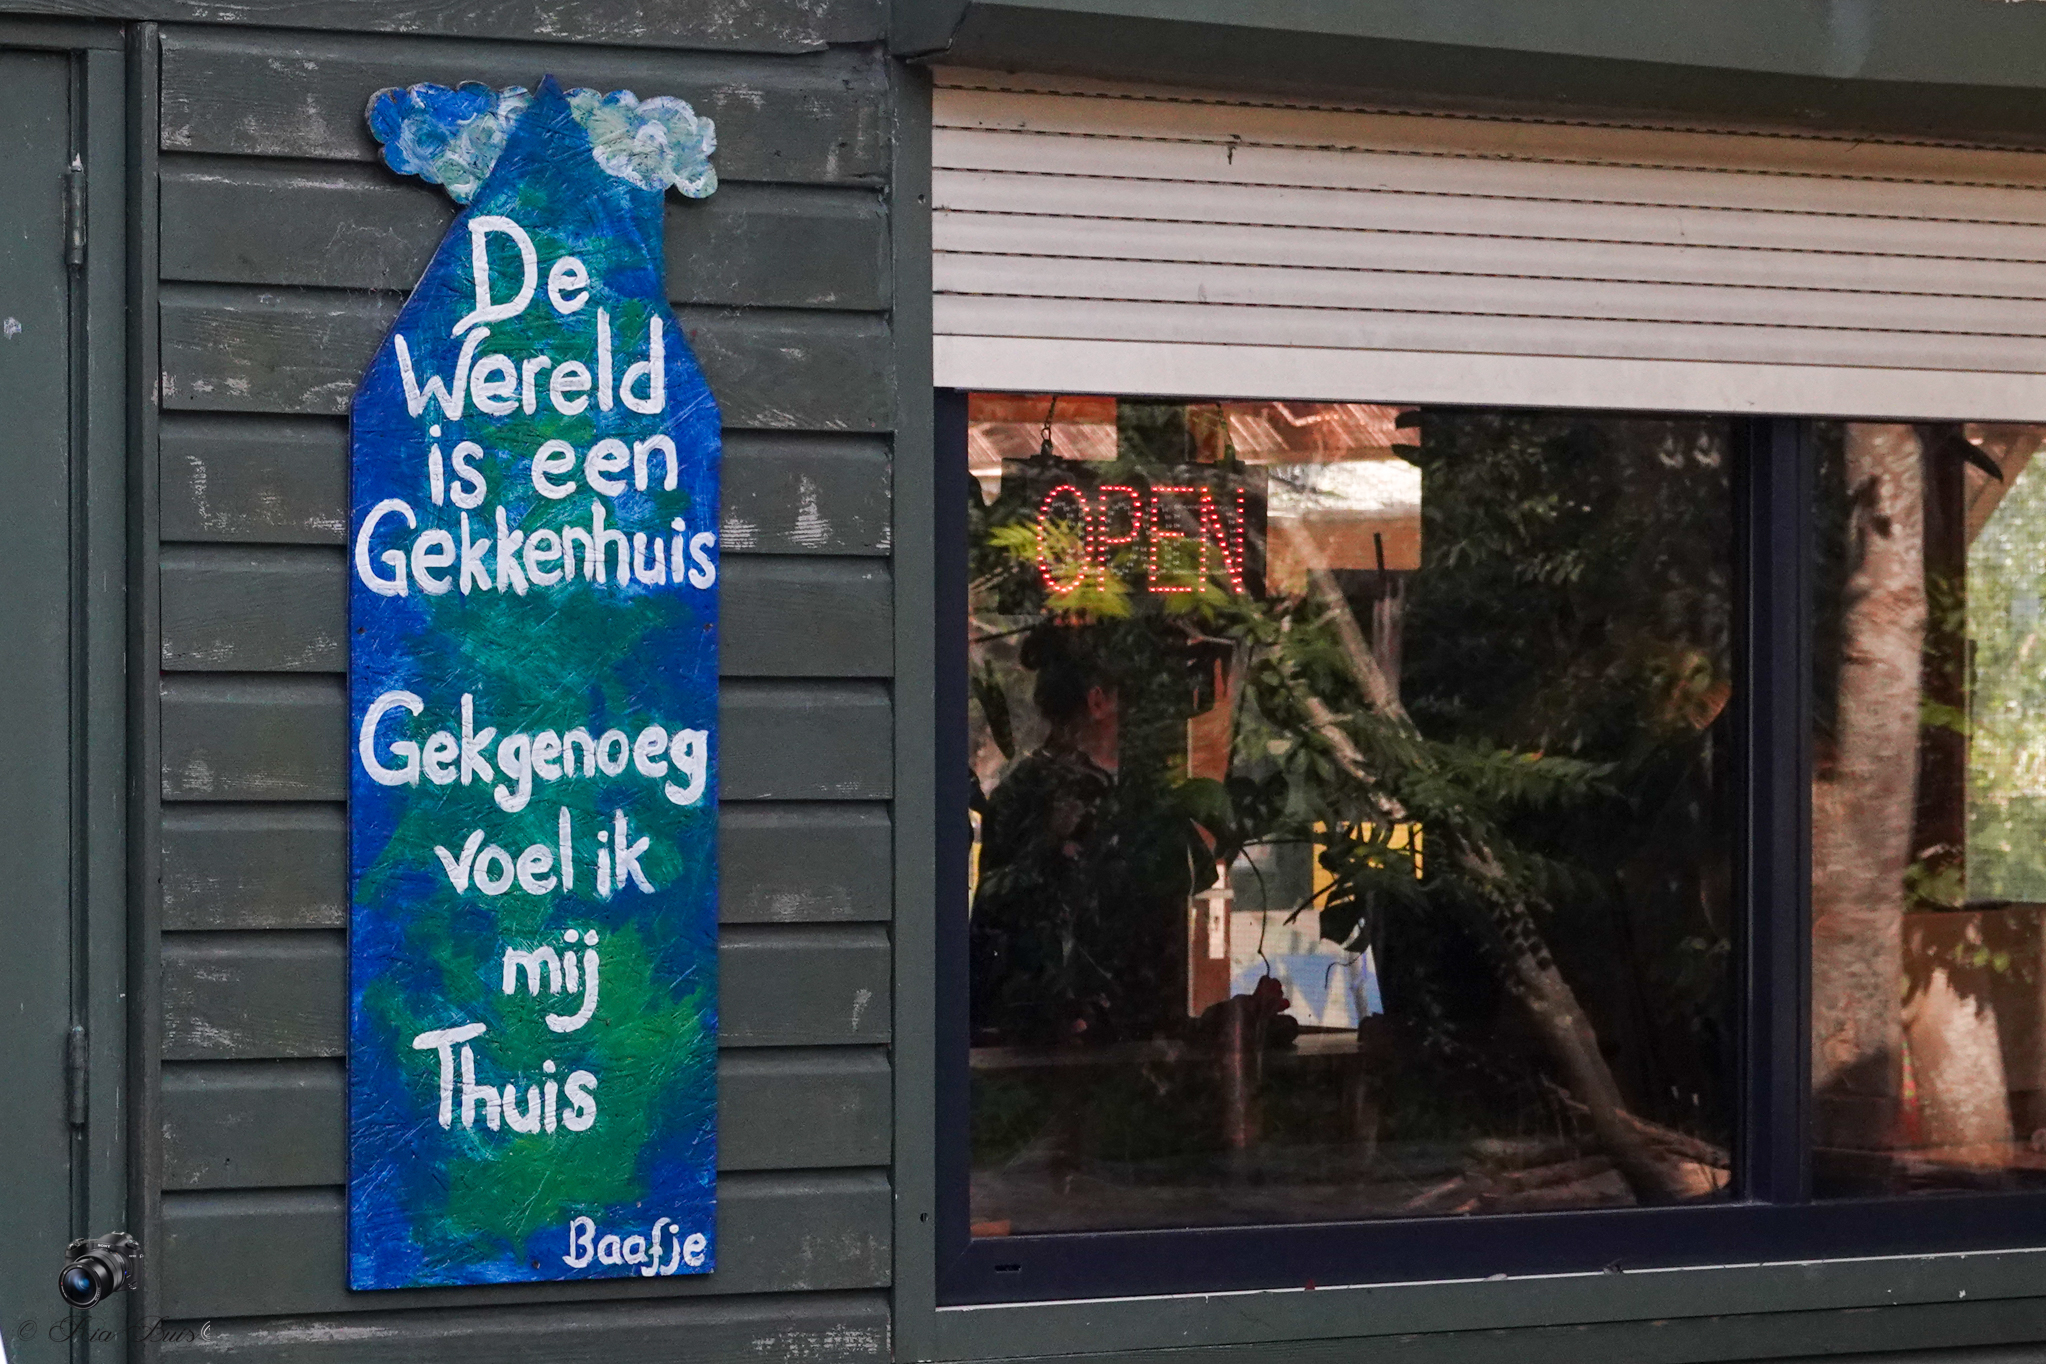 De
Wereld
is een
Gekkenhuis
Gekgenoeg
voel ik
mij
Thuis
Baafje
OPEN